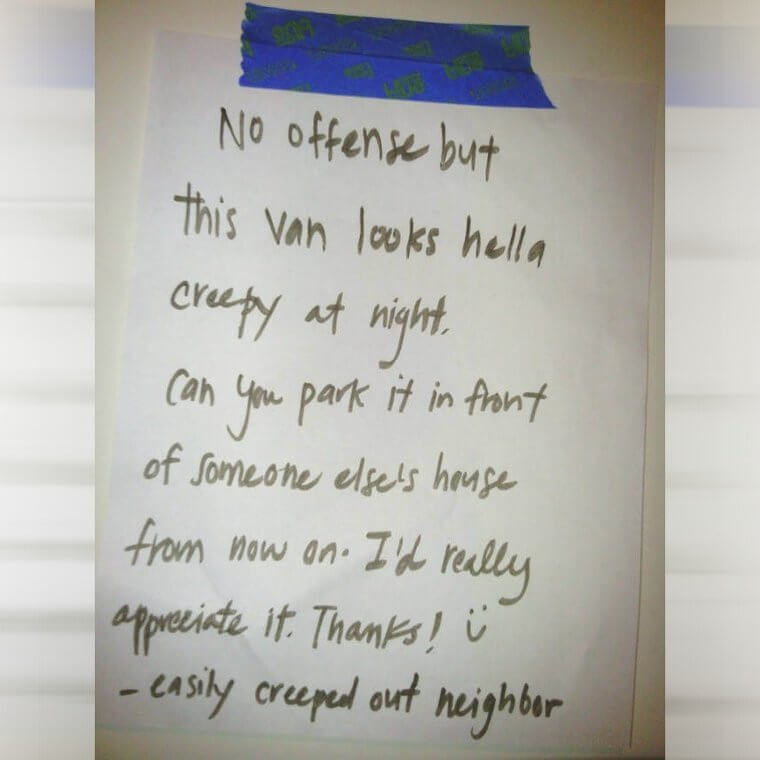 No offense but
this van looks hella
creepy at night.
Can you park it in front
of someone else's house
from now on. I'd really
appreciate it. Thanks! ü
- easily creeped out neighbor